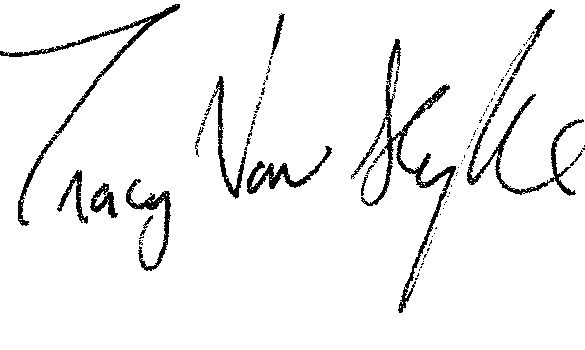 Tracy Van Slyke